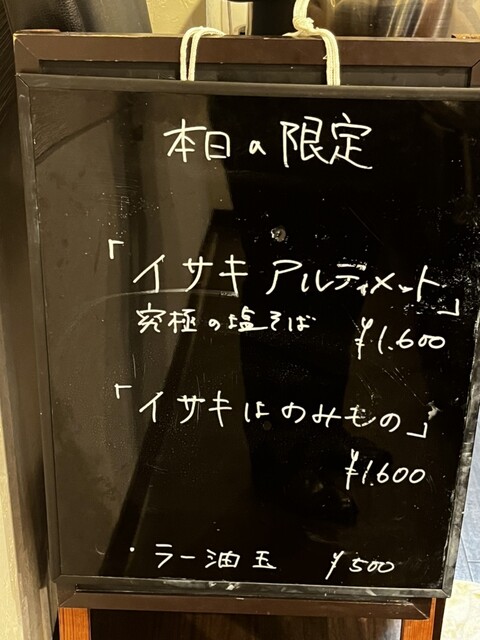 本日の限定
「イサキ アルティメット」
究極の塩そば ¥1.600
「イサキはのみもの」
¥1.600
・ラー油玉 ¥500